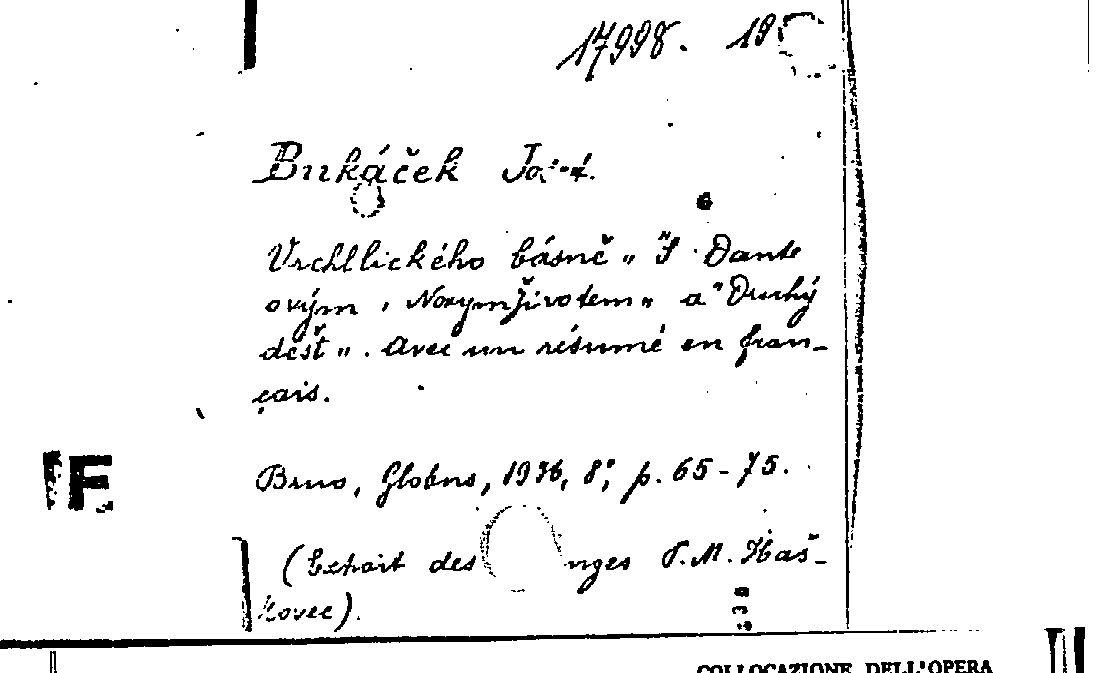 17998. 19
Bukáček Josef.
6
Vrchllického básně „S Dante
ovým „Novým Životem" a "Druhý
déšť". Avec un résumé en fran-
çais.
F
Brno, Globus, 1936, 8°, p. 65-75.
(Extrait des nges P.M. Haš-
kovec).
COLLOCAZIONE DELL'OPERA